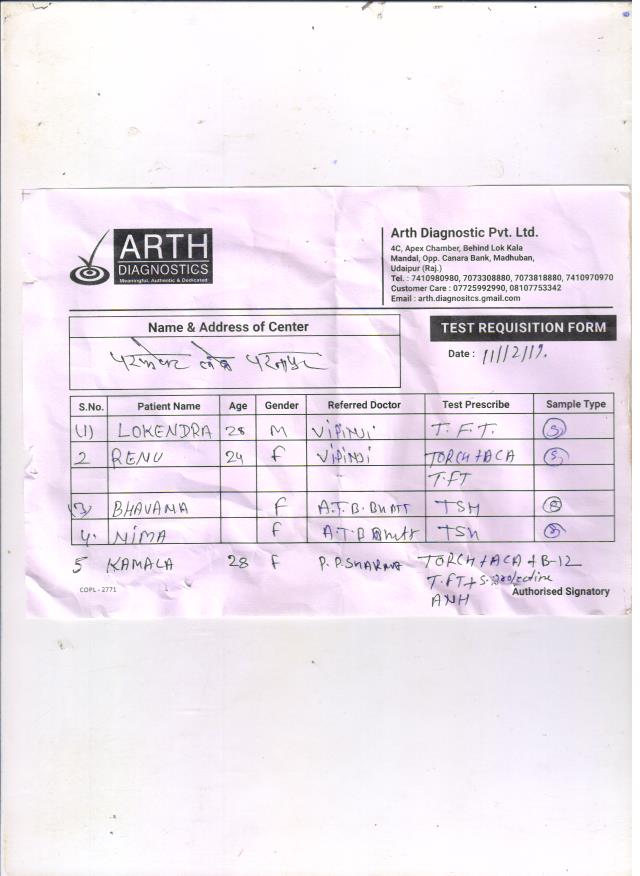 ARTH
DIAGNOSTICS
Meaningful, Authentic & Dedicated
Arth Diagnostic Pvt. Ltd.
4C, Apex Chamber, Behind Lok Kala
Mandal, Opp. Canara Bank, Madhuban,
Udaipur (Raj.)
Tel. : 7410980980, 7073308880, 7073818880, 7410970970
Customer Care : 07725992990, 08107753342
Email : arth.diagnositcs.gmail.com
Name & Address of Center
TEST REQUISITION FORM
Date : 11/12/19.
S.No. Patient Name Age Gender Referred Doctor Test Prescribe Sample Type
(1) LOKENDRA 28 M VIPINJI T.F.T. (S)
2 RENU 24 F VIPINJI TORCH+ACA (S)
T.FT
(3) BHAVANA F A.T.B.Bhatt TSH (S)
4. NIMA F A.T.B Bhatt TSH (S)
5 KAMALA 28 F P.P.SHARMA TORCH+ACA+B-12
T.FT+S.
AMH
COPL - 2771
Authorised Signatory